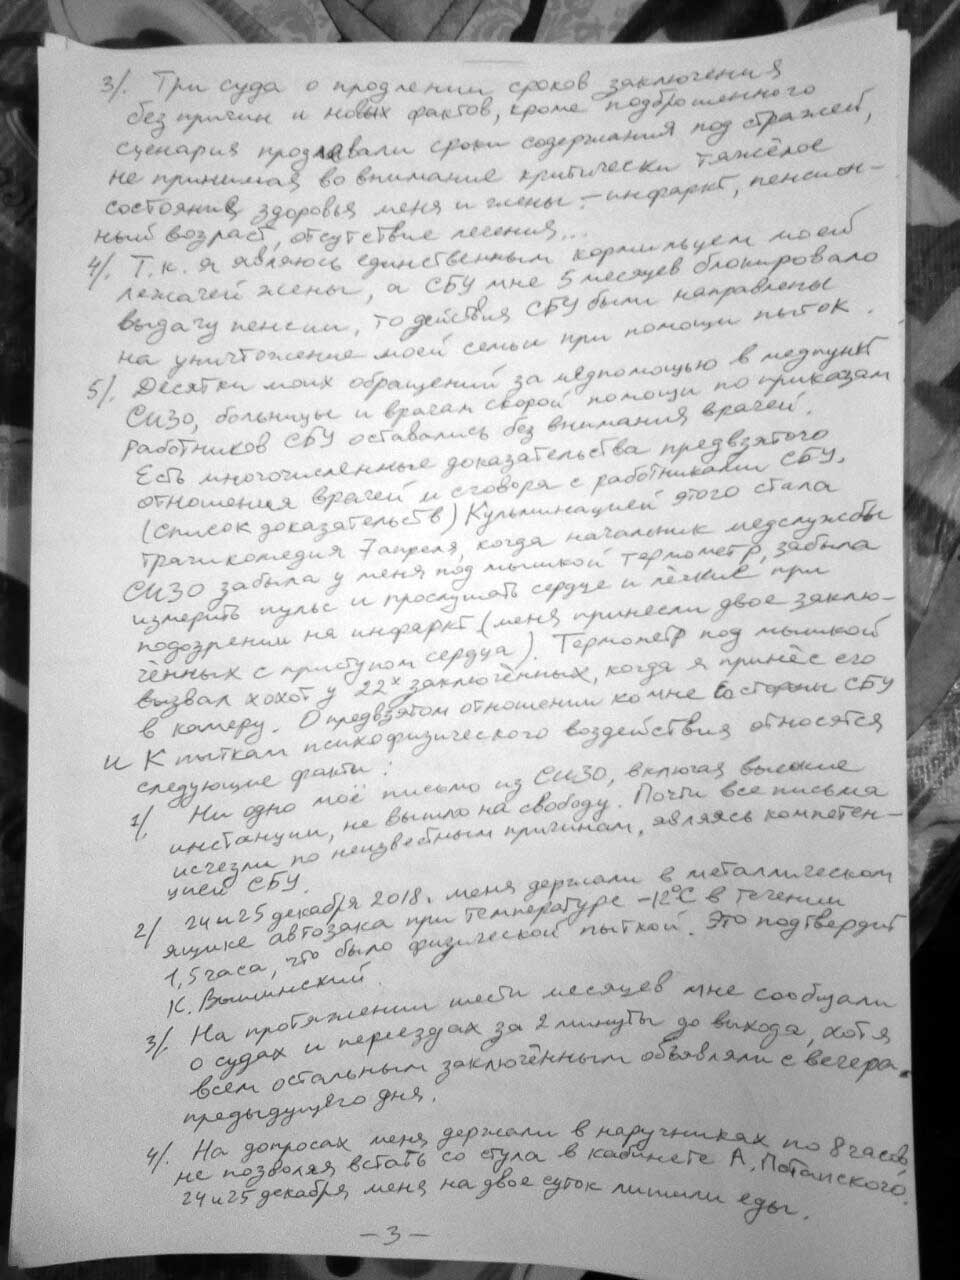 3/. Три суда о продлении сроков заключения
без причин и новых фактов, кроме подброшенного
сценария продлевали сроки содержания под стражей,
не принимая во внимание критически тяжёлое
состояние здоровья меня и жены: – инфаркт, пенсион-
ный возраст, отсутствие лечения...
4/. Т.к. я являюсь единственным кормильцем моей
лежачей жены, а СБУ мне 5 месяцев блокировало
выдачу пенсии, то действия СБУ были направлены
на уничтожение моей семьи при помощи пыток.
5/. Десятки моих обращений за медпомощью в медпункт
СИЗО, больницы и врачам скорой помощи по приказам
работников СБУ оставались без внимания врачей.
Есть многочисленные доказательства предвзятого
отношения врачей и сговора с работниками СБУ.
(список доказательств) Кульминацией этого стала
трагикомедия 7 апреля, когда начальник медслужбы
СИЗО забыла у меня под мышкой термометр, забыла
измерить пульс и прослушать сердце и лёгкие при
подозрении на инфаркт (меня принесли двое заклю-
чённых с приступом сердца). Термометр под мышкой
вызвал хохот у 22х заключённых, когда я принёс его
в камеру. О предвзятом отношении ко мне со стороны СБУ
и К пыткам психофизического воздействия относятся
следующие факты:
1/. Ни одно моё письмо из СИЗО, включая высшие
инстанции, не вышло на свободу. Почти все письма
исчезли по неизвестным причинам, являясь компетен-
цией СБУ.
2/ 24 и 25 декабря 2018г. меня держали в металлическом
ящике автозака при температуре –12°С в течении
1,5 часа, что было физической пыткой. Это подтвердит
К. Вышинский.
3/. На протяжении шести месяцев мне сообщали
о судах и переездах за 2 минуты до выхода, хотя
всем остальным заключённым объявляли с вечера
предыдущего дня.
4/. На допросах меня держали в наручниках по 8 часов,
не позволяя встать со стула в кабинете А. Потайского.
24 и 25 декабря меня на двое суток лишили еды.
– 3 –